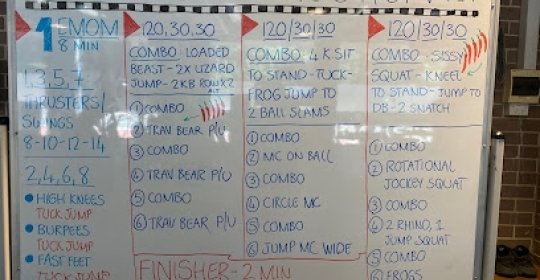 1 EMOM
8 MIN
1,3,5,7
THRUSTERS/
SWINGS
8-10-12-14
2,4,6,8
HIGH KNEES
TUCK JUMP
BURPEES
TUCK JUMP
FAST FEET
TUCK JUMP
120,30,30
COMBO - LOADED
BEAST - 2X LIZARD
JUMP - 2KB ROW X2
ALT
① COMBO
② TRAV BEAR P/U
③ COMBO
④ TRAV BEAR P/U
⑤ COMBO
⑥ TRAV BEAR P/U
120/30/30
COMBO - 4 K.SIT
TO STAND - TUCK-
FROG JUMP TO
2 BALL SLAMS
① COMBO
② MC ON BALL
③ COMBO
④ CIRCLE MC
⑤ COMBO
⑥ JUMP MC WIDE
120/30/30
COMBO - SISSY
SQUAT - KNEEL
TO STAND - JUMP TO
DB - 2 SNATCH
① COMBO
② ROTATIONAL
JOCKEY SQUAT
③ COMBO
④ 2 RHINO, 1
JUMP SQUAT
⑤ COMBO
⑥ FROGS
FINISHER - 2 MIN